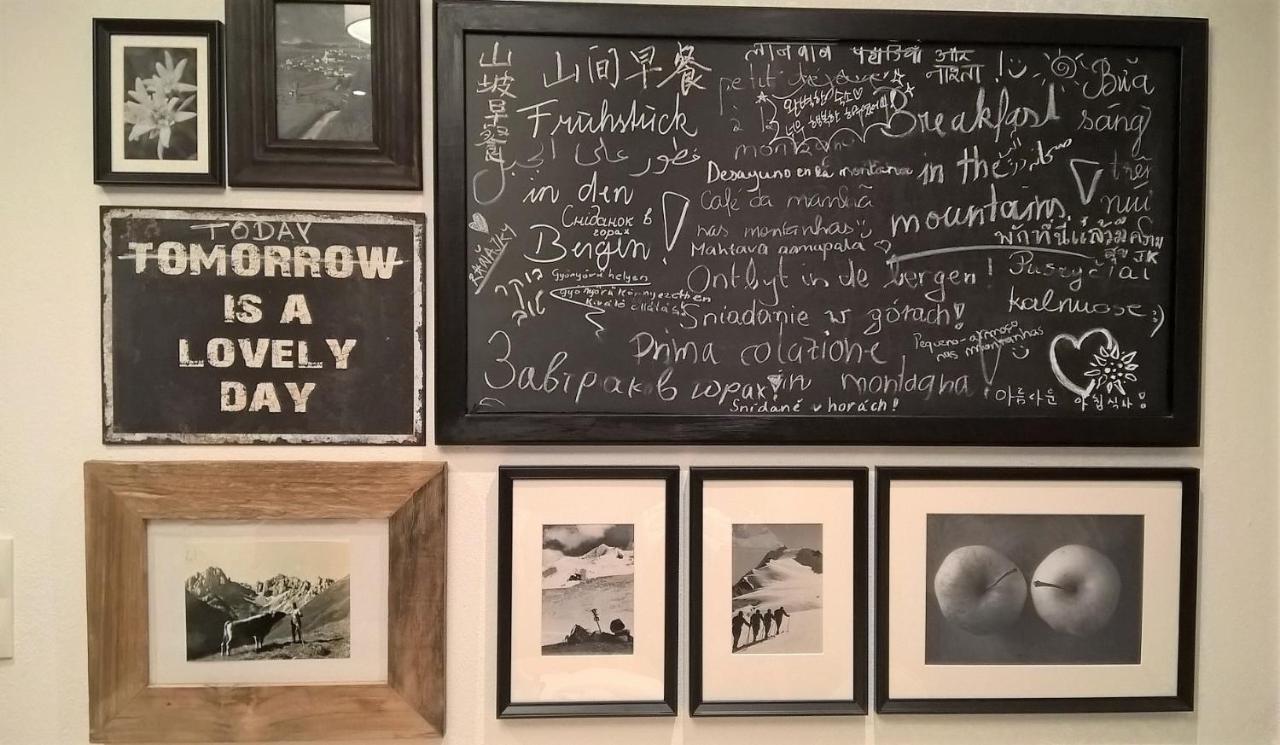 TODAY
TOMORROW
IS A
LOVELY
DAY
山坡早餐
山间早餐
Frühstück
فطور على الجبل
in den
Bergen!
Сніданок в
горах
RAŇAJKY
בוקר
טוב
Gyönyörű helyen
gyönyörű környezetben
kiváló ellátás!
Завтрак в горах!
petit déjeuner
à la
montagne
완벽한 숙소
너무 행복한 하루였어요!
Desayuno en la montaña
Café da manhã
nas montanhas
Mahtava aamupala
Ontbyt in de bergen!
Śniadanie w górach!
Prima colazione
in montagna!
Snídaně v horách!
और
नाश्ता !
Breakfast
in the
mountains
Bữa
sáng
trên
núi
พักที่นี่แล้วมีความ
สุข JK
Pusryčiai
kalnuose :)
Pequeno-almoço
nas montanhas
아름다운 아침식사!